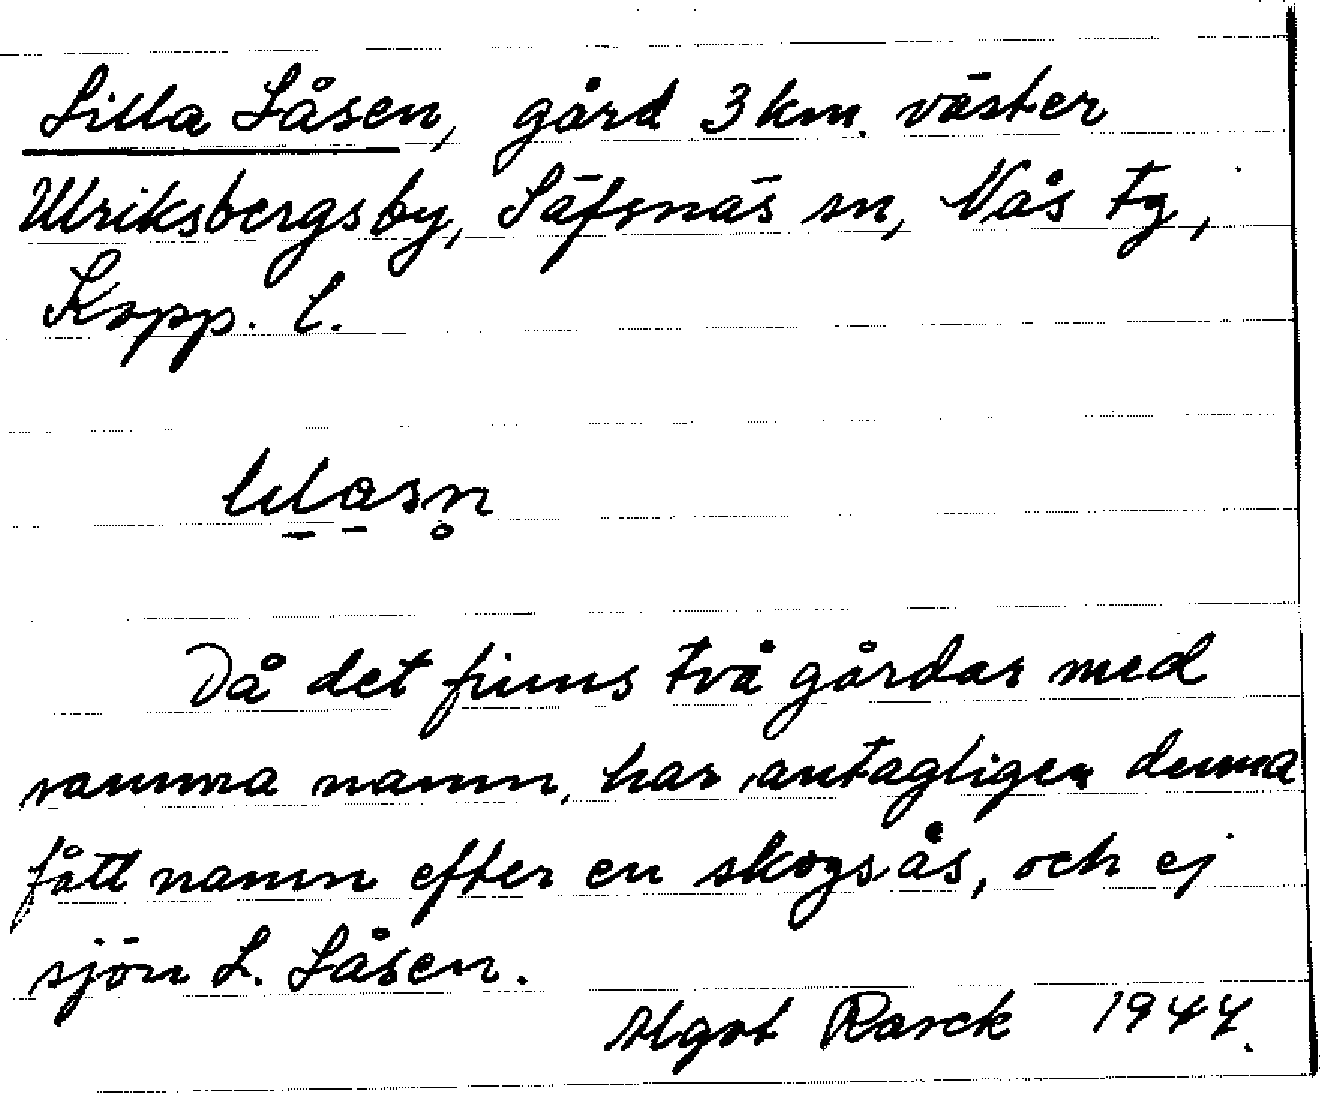 Lilla Låsen, gård 3 km. väster
Ulriksbergsby, Säfsnäs sn, Nås tg,
Kopp. l.
Då det finns två gårdar med
samma namn, har antagligen denna
fått namn efter en skogsås, och ej
sjön L. Låsen.
Algot Rarck 1944.